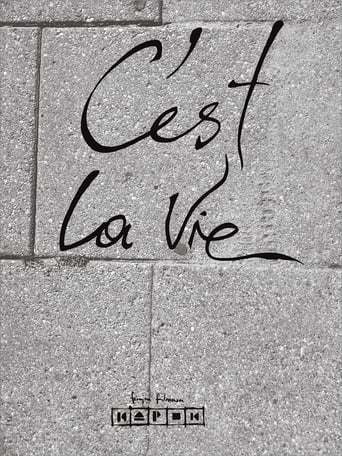 C'est
La Vie